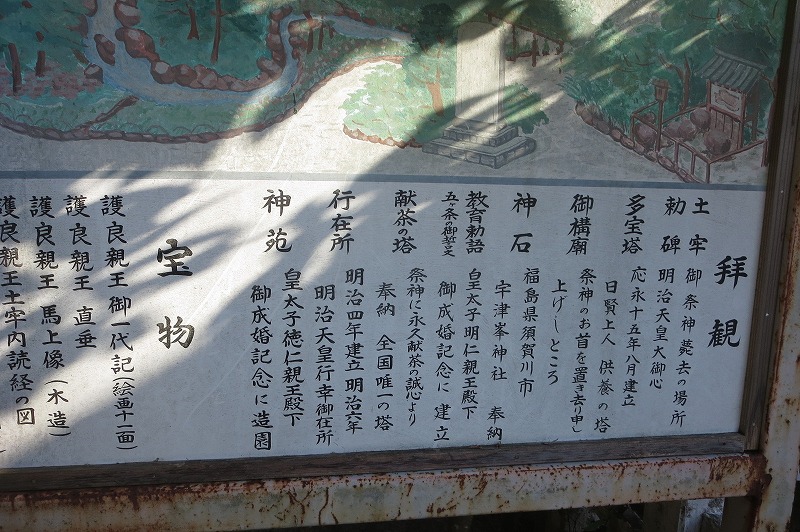 拝観
土牢 御祭神薨去の場所
勅碑 明治天皇大御心
多宝塔 応永十五年八月建立
日賢上人 供養の塔
御構廟 祭神のお首を置き去り申し
上げしところ
神石 福島県須賀川市
宇津峯神社 奉納
教育勅語 皇太子明仁親王殿下
五ヶ条の御誓文 御成婚記念に建立
献茶の塔 祭神に永久献茶の誠心より
奉納 全国唯一の塔
行在所 明治四年建立 明治六年
明治天皇行幸御在所
神苑 皇太子徳仁親王殿下
御成婚記念に造園
宝物
護良親王 御一代記(絵画十二面)
護良親王 直垂
護良親王 馬上像(木造)
護良親王土牢内読経の図